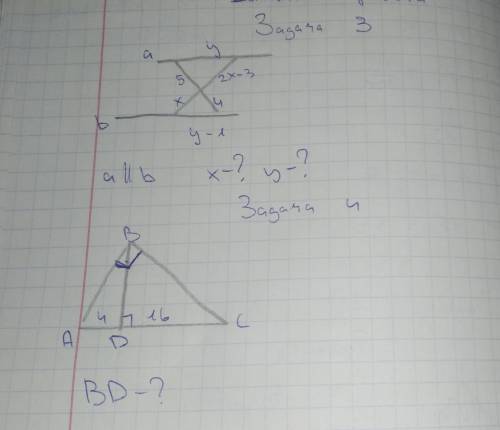 Задача 3
a y
5 2x-3
x 4
b
y-1
a || b x-? y-?
Задача 4
B
4 16
A D C
BD-?